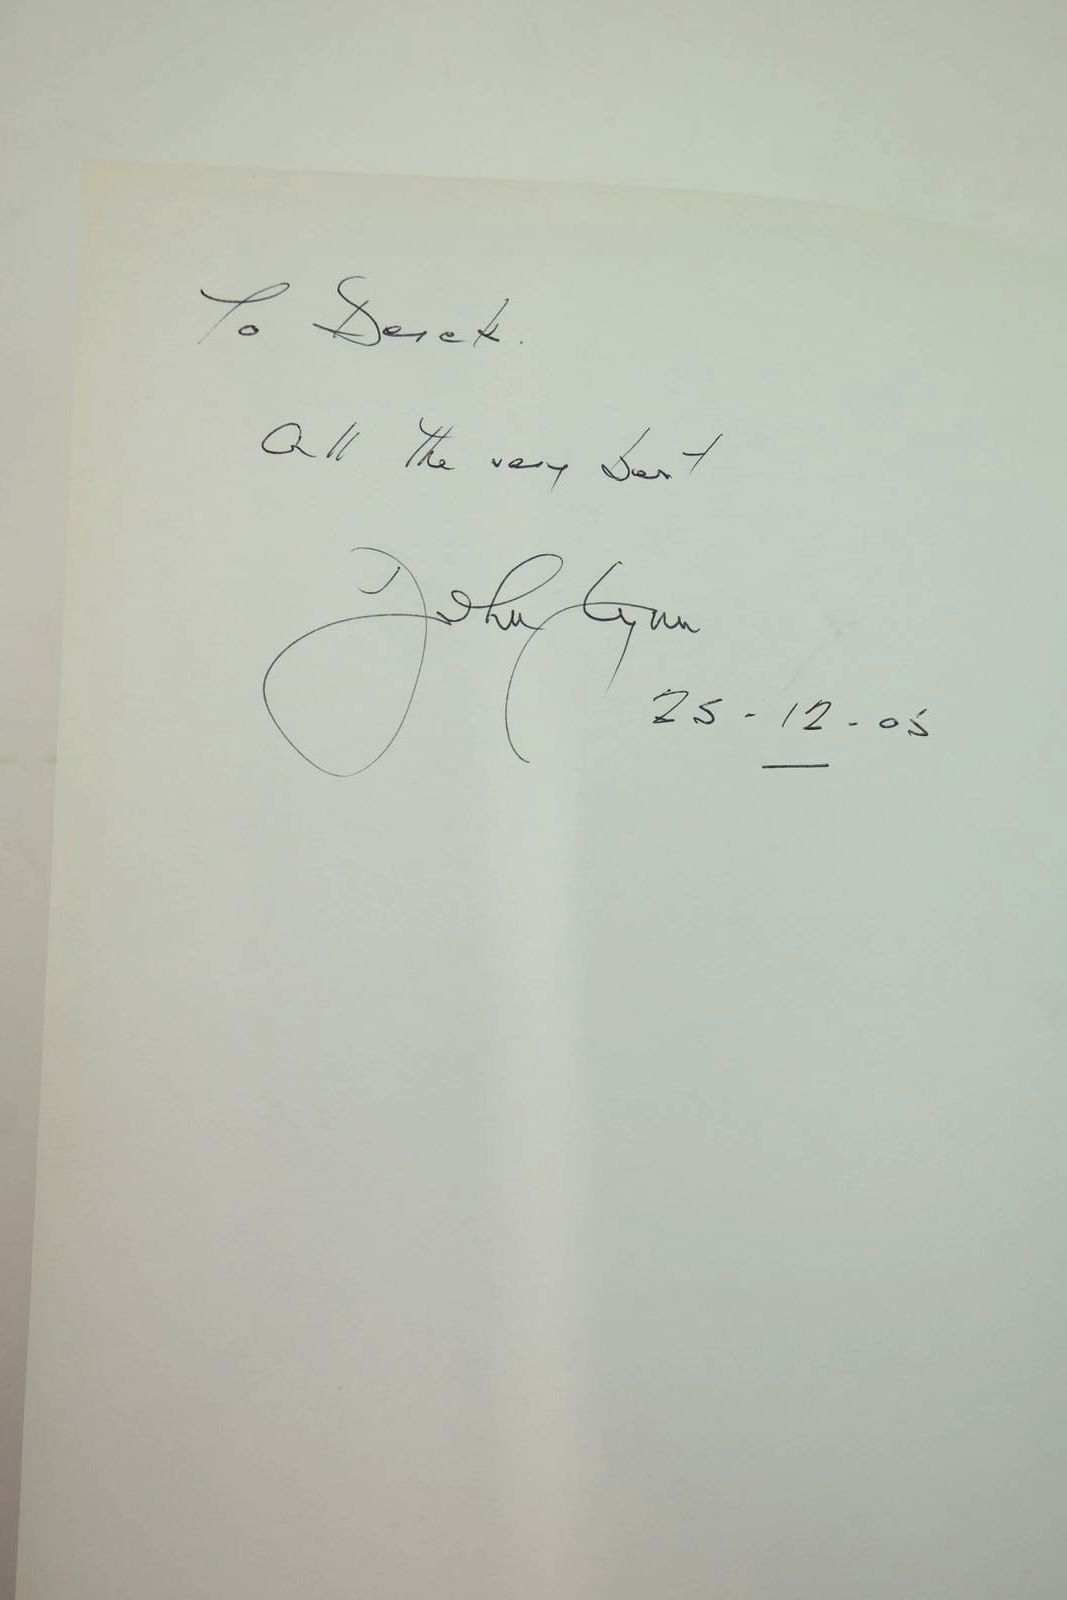 To Derek.
All the very best
John Lynn
25-12-05